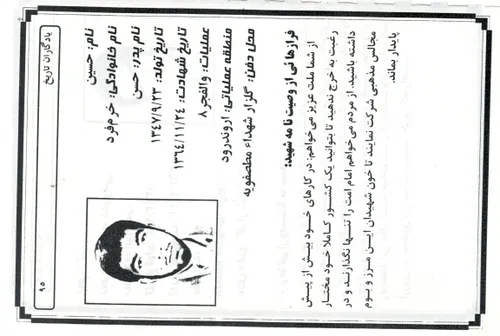 یادگاران تاریخ
۹۵
نام: حسین
نام خانوادگی: خرم‌فرد
نام پدر: حسن
تاریخ تولد: ۱۳۴۷/۹/۲۳
تاریخ شهادت: ۱۳۶۴/۱۱/۲۴
عملیات: والفجر ۸
منطقه عملیاتی: اروندرود
محل دفن: گلزار شهداء مطصفویه
فرازهائی از وصیت نامه شهید:
از شما ملت عزیز می‌خواهم: در کارهای خود بیش از پیش
رغبت به خرج ندهید تا بتوانید یک کشور کاملا خود مختار
داشته باشید. از مردم می‌خواهم امام امت را تنها نگذارند و در
مجالس مذهبی شرکت نمایند تا خون شهیدان این مرز و بوم
پایدار بماند.